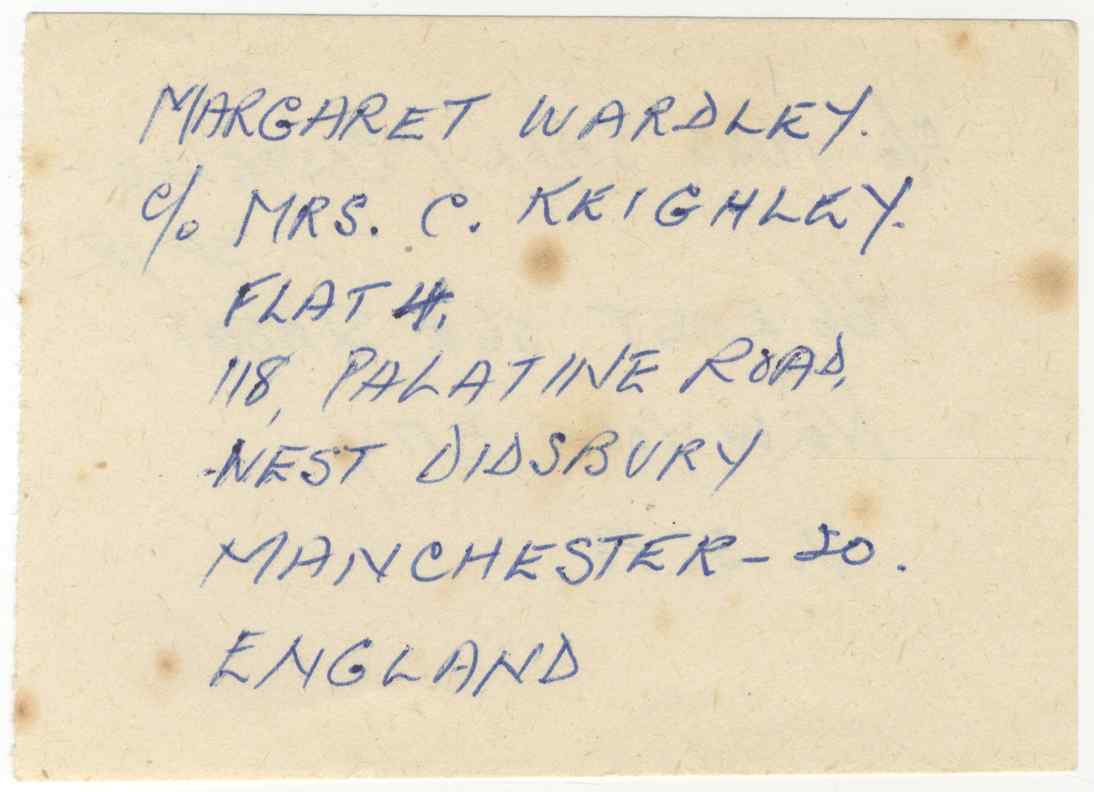 MARGARET WARDLEY.
c/o MRS. C. KEIGHLEY.
FLAT 4,
118, PALATINE ROAD,
WEST DIDSBURY
MANCHESTER - 20.
ENGLAND